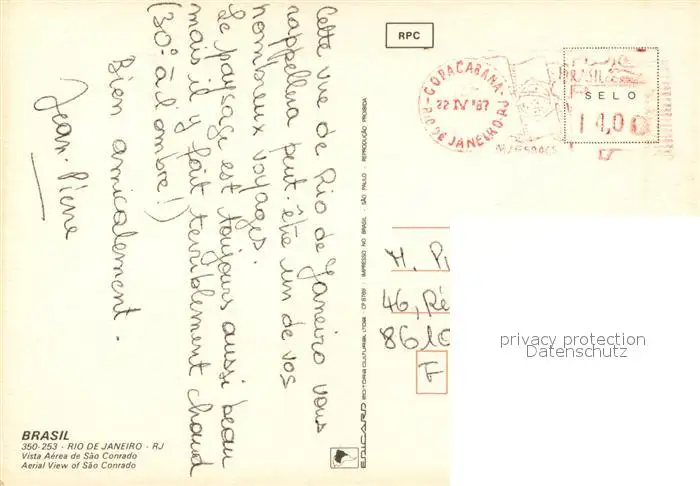 Cette vue de Rio de Janeiro vous
rappellera peut-être un de vos
nombreux voyages.
Le paysage est toujours aussi beau
mais il y fait terriblement chaud
(30° à l'ombre!)
Bien amicalement.
Jean-Pierre
BRASIL
350-253 - RIO DE JANEIRO - RJ
Vista Aérea de São Conrado
Aerial View of São Conrado
EDICARD EDITORA CULTURAL LTDA - CP 8789 - IMPRESSO NO BRASIL - SÃO PAULO - REPRODUÇÃO PROIBIDA
RPC
COPACABANA
22 IV '87
RIO DE JANEIRO-RJ
BRASIL
SELO
14,00
M. P
46, Ré
8610
F
privacy protection
Datenschutz